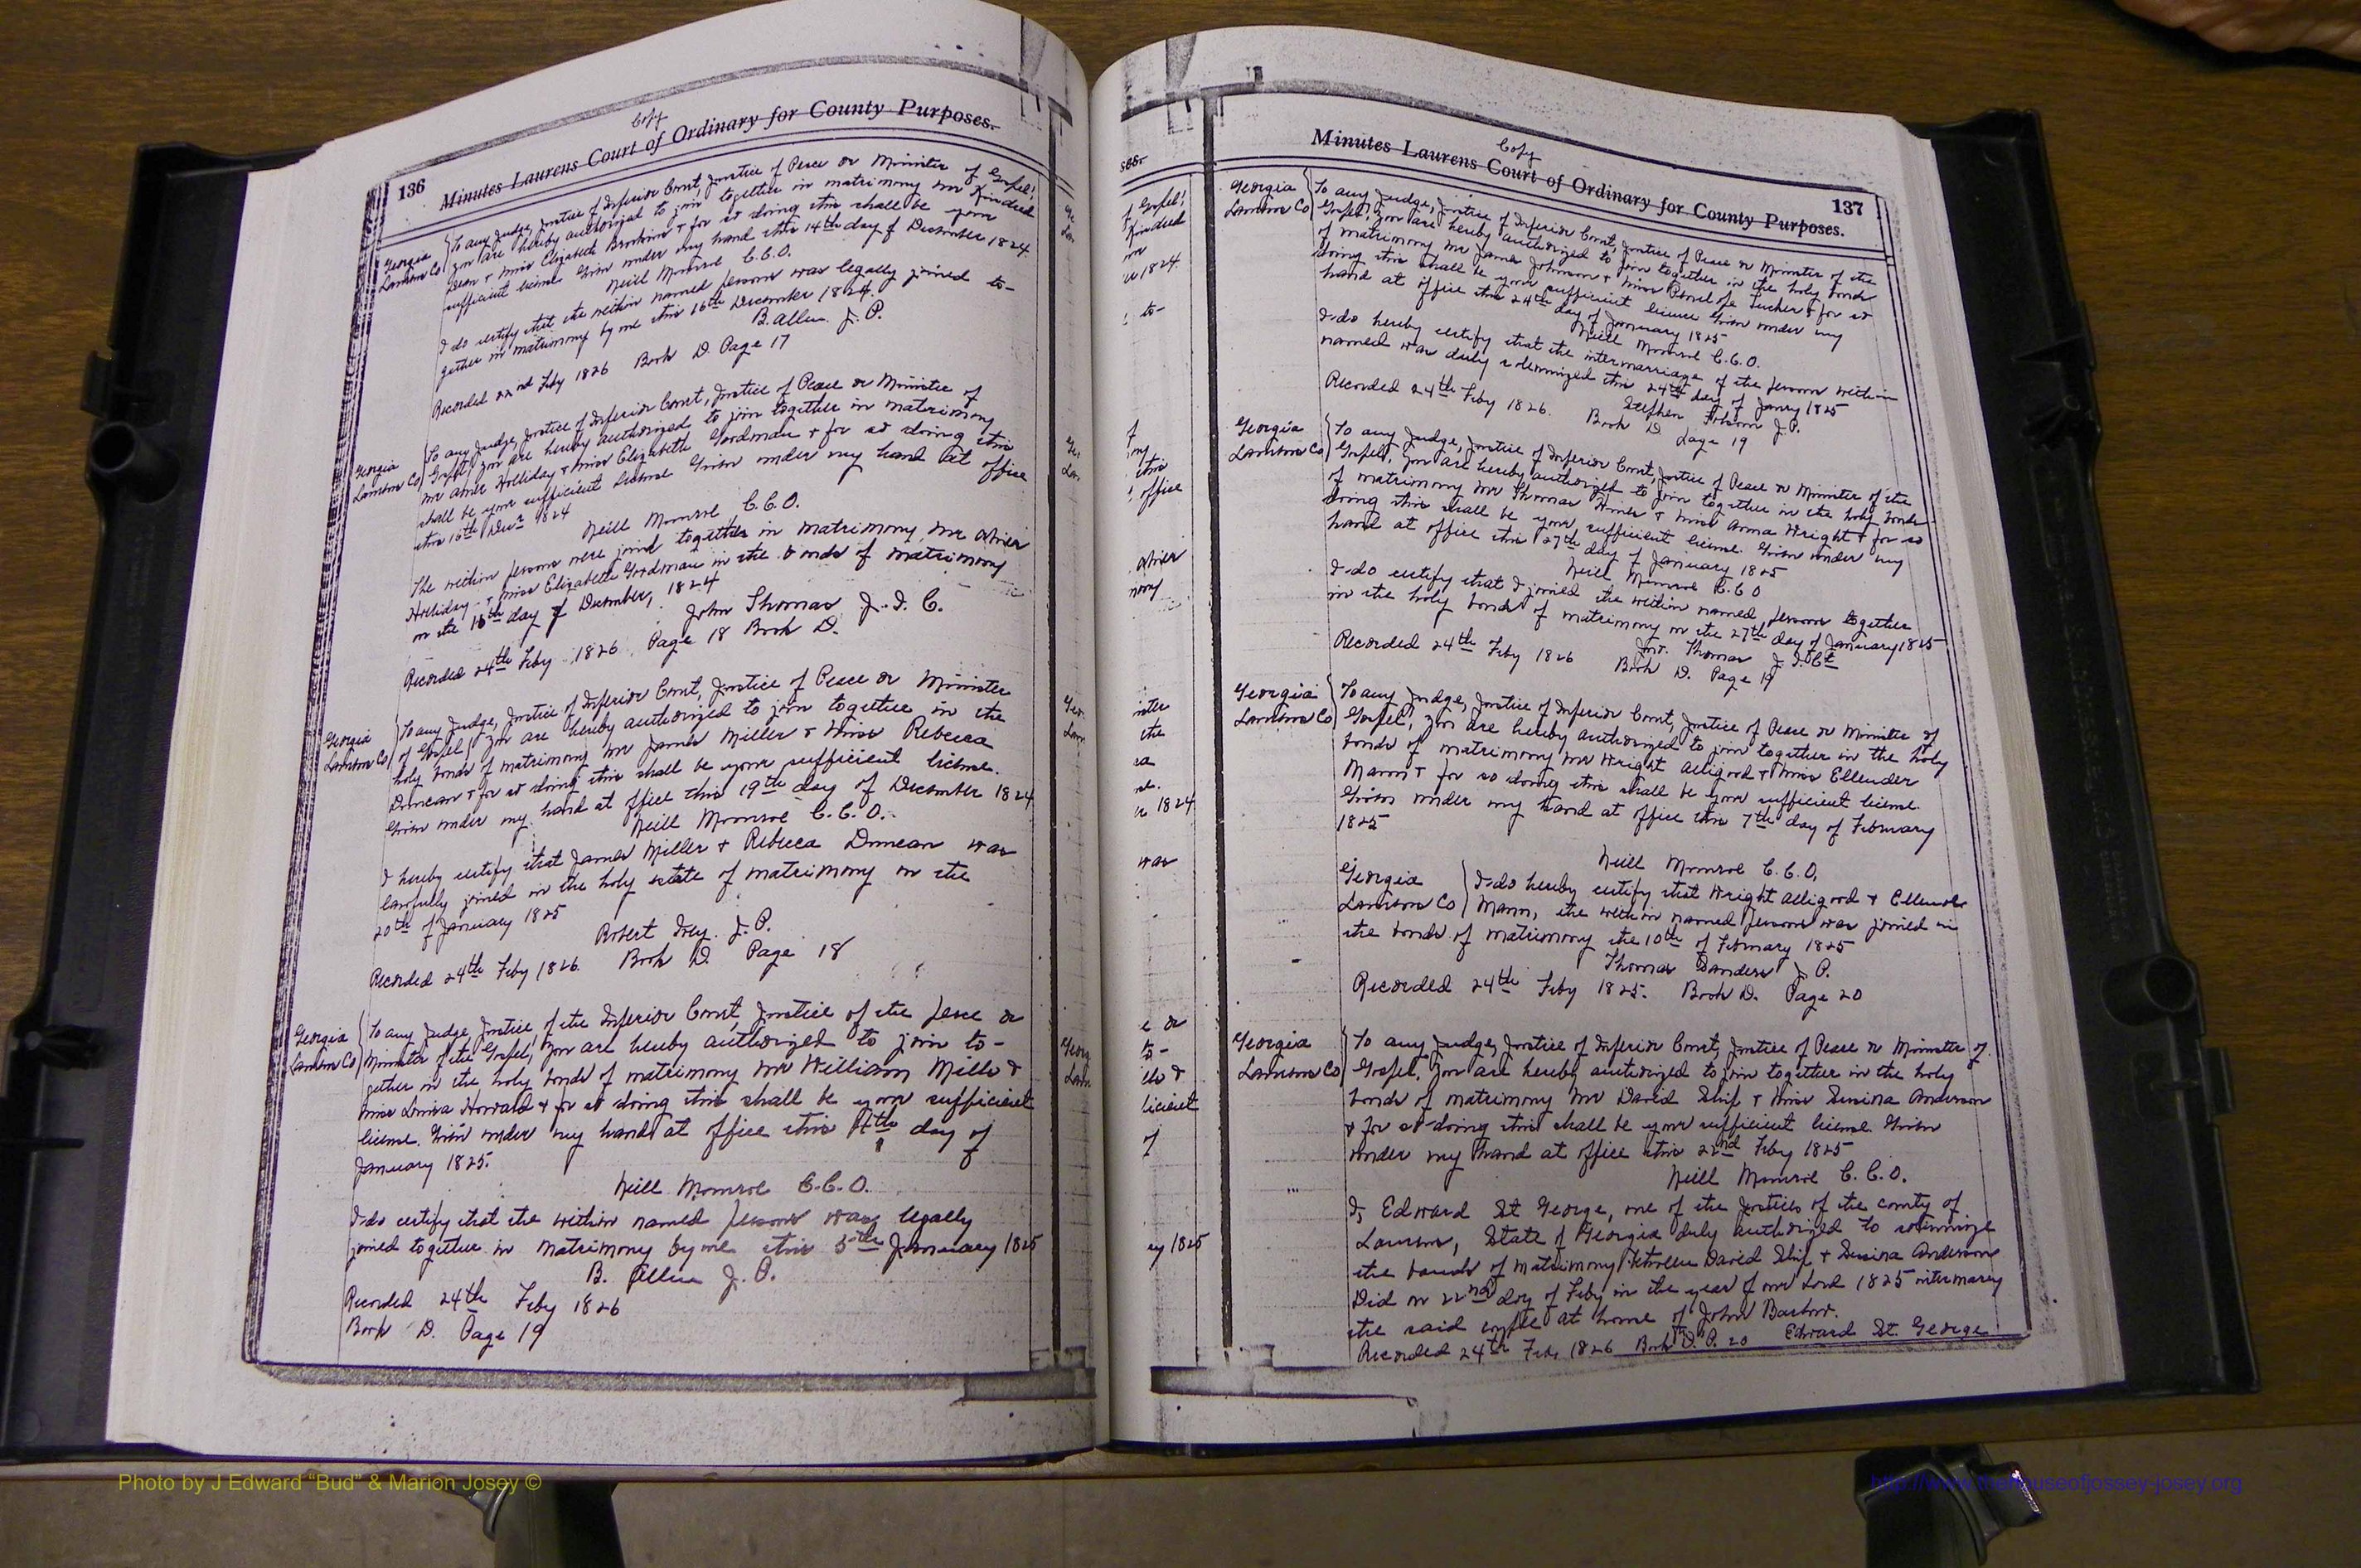 Copy
136 Minutes Laurens Court of Ordinary for County Purposes.
Georgia
Laurens Co
To any Judge, Justice of Inferior Court, Justice of Peace or Minister of Gospel!
you are hereby authorized to join together in matrimony Mr Kindred
Dean & Miss Elizabeth Brookins & for so doing this shall be your
sufficient license Given under my hand this 14th day of December 1824.
Neill Monroe C.C.O.
I do certify that the within named persons was legally joined to-
gether in matrimony by me this 16th December 1824.
B. Allen J. P.
Recorded 22nd Feby 1826 Book D. Page 17
Georgia
Laurens Co
To any Judge, Justice of Inferior Court, Justice of Peace or Minister of
Gospel, you are hereby authorized to join together in matrimony
Mr Abner Holliday & Miss Elizabeth Goodman & for so doing this
shall be your sufficient license Given under my hand at office
this 16th Decr 1824
Neill Monroe, C.C.O.
The within persons were joined together in matrimony, Mr Abner
Holliday & Miss Elizabeth Goodman in the bonds of matrimony
on the 16th day of December, 1824
John Thomas J. I. C.
Recorded 24th Feby 1826, Page 18 Book D.
Georgia
Laurens Co
To any Judge, Justice of Inferior Court, Justice of Peace or Minister
of Gospel, you are hereby authorized to join together in the
holy bonds of matrimony Mr James Miller & Miss Rebecca
Duncan & for so doing this shall be your sufficient license.
Given under my hand at office this 19th day of December 1824
Neill Monroe C.C.O.
I hereby certify that James Miller & Rebecca Duncan was
lawfully joined in the holy state of matrimony on the
20th of January 1825
Robert J. P.
Recorded 24th Feby 1826. Book D. Page 18
Georgia
Laurens Co
To any Judge, Justice of the Inferior Court, Justice of the peace or
Minister of the Gospel, you are hereby authorized to join to-
gether in the holy bonds of matrimony Mr William Mills &
Miss Louisa Howard & for so doing this shall be your sufficient
license. Given under my hand at office this 4th day of
January 1825.
Neill Monroe C.C.O.
I do certify that the within named persons was legally
joined together in matrimony by me this 5th January 1825
B. Allen J. P.
Recorded 24th Feby 1826
Book D. Page 19
Copy
Minutes Laurens Court of Ordinary for County Purposes. 137
Georgia
Laurens Co
To any Judge, Justice of Inferior Court, Justice of Peace or Minister of the
Gospel, you are hereby authorized to join together in the holy bonds
of matrimony Mr James Johnson & Miss Tucker & for so
doing this shall be your sufficient license Given under my
hand at office this 24th day of January 1825
Neill Monroe C.C.O.
I do hereby certify that the intermarriage of the persons within
named was duly solemnized this 24th day of Janry 1825
Stephen Folsom J.P.
Recorded 24th Feby 1826. Book D. Page 19
Georgia
Laurens Co
To any Judge, Justice of Inferior Court, Justice of Peace or Minister of the
Gospel, you are hereby authorized to join together in the holy bonds
of matrimony Mr Thomas & Miss Anna Wright & for so
doing this shall be your sufficient license. Given under my
hand at office this 27th day of January 1825
Neill Monroe C.C.O
I do certify that I joined the within named persons together
in the holy bonds of matrimony on the 27th day of January 1825
Jno. Thomas J. I. Ct
Recorded 24th Feby 1826 Book D. Page 19
Georgia
Laurens Co
To any Judge, Justice of Inferior Court, Justice of Peace or Minister of
Gospel, you are hereby authorized to join together in the holy
bonds of matrimony Mr Wright Alligood & Miss Ellender
Mann & for so doing this shall be your sufficient license.
Given under my hand at office this 7th day of February
1825
Neill Monroe C.C.O.
Georgia
Laurens Co
I do hereby certify that Wright Alligood & Ellender
Mann, the within named persons was joined in
the bonds of matrimony the 10th of February 1825
Thomas Sanders J. P.
Recorded 24th Feby 1825. Book D. Page 20
Georgia
Laurens Co
To any Judge, Justice of Inferior Court, Justice of Peace or Minister of
Gospel, you are hereby authorized to join together in the holy
bonds of matrimony Mr David Ship & Miss Susina Anderson
& for so doing this shall be your sufficient license. Given
under my hand at office this 22nd Feby 1825
Neill Monroe C.C.O.
I, Edward St George, one of the Justices of the county of
Laurens, State of Georgia duly authorized to solemnize
the bonds of matrimony between David Ship & Susina Anderson
Did on 22nd day of Feby in the year of our Lord 1825 intermarry
the said couple at home of John Barlow.
Recorded 24th Feb, 1826 Book D. P. 20 Edward St. George
Photo by J Edward “Bud” & Marion Josey ©
http://www.thehouseofjossey-josey.org